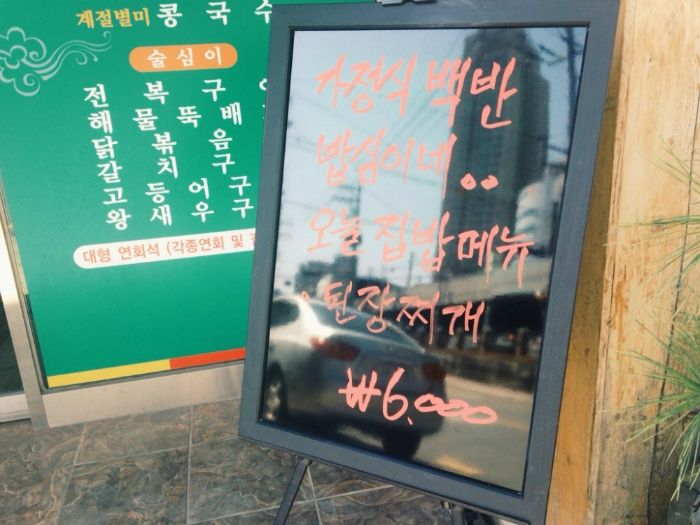 계절별미 콩 국 수
술심이
전 복 구
해 물 뚝 배
닭 복 음
갈 치 구
고 등 어 구
왕 새 우 구
대형 연회석 (각종연회 및
가정식 백반
밥심이네..
오늘 집밥메뉴
·된장찌개
₩6.000